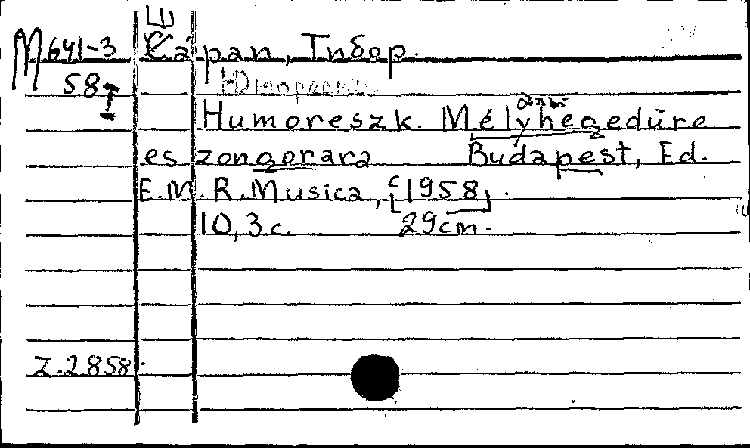 М 641-3 Ша́ран, Тибор.
58 Юмореска
Humoreszk. Mélyhegedüre
es zongorara Budapest, Ed.
E.M.R. Musica, c [1958].
10, 3 c. 29 cm.
Z.2858